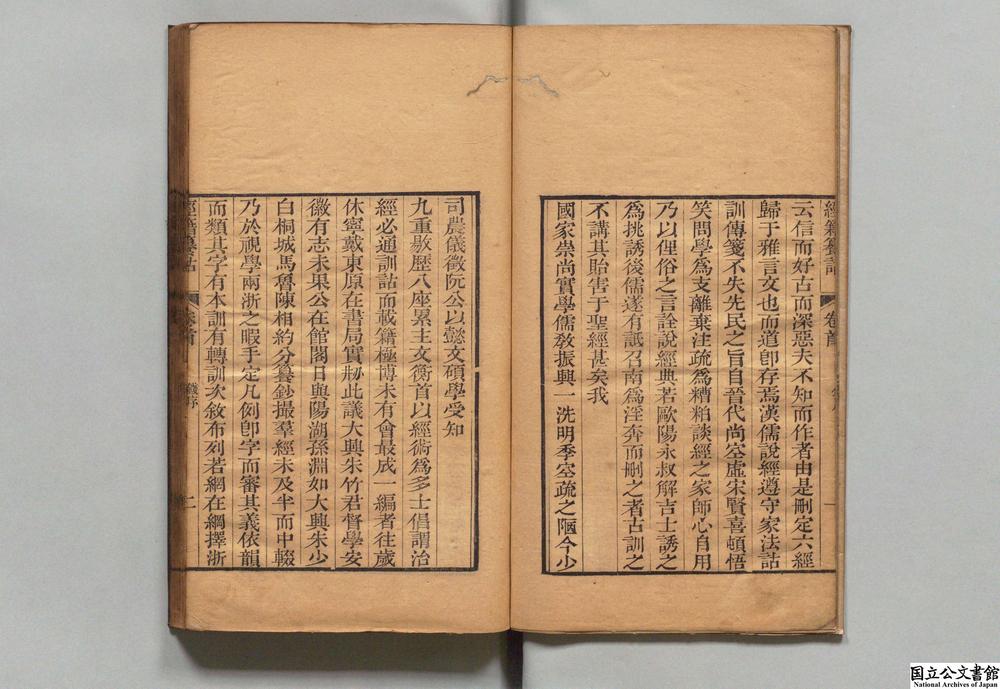 云信而好古而深惡夫不知而作者由是刪定六經
歸于雅言文也而道卽存焉漢儒說經遵守家法詁
訓傳箋不失先民之旨自晉代尚空虛宋賢喜頓悟
笑問學爲支離棄注疏爲糟粕談經之家師心自用
乃以俚俗之言詮說經典若歐陽永叔解吉士誘之
爲挑誘後儒遂有詆召南爲淫奔而刪之者古訓之
不講其貽害于聖經甚矣我
國家崇尚實學儒敎振興一洗明季空疏之陋今少
司農儀徵阮公以懿文碩學受知
九重敭歷八座累主文衡首以經術爲多士倡謂治
經必通訓詁而載籍極博未有會最成一編者往歲
休寧戴東原在書局實剏此議大興朱竹君督學安
徽有志未果公在館閣日與陽湖孫淵如大興朱少
白桐城馬魯陳相約分籑鈔撮羣經未及半而中輟
乃於視學兩浙之暇手定凡例卽字而審其義依韻
而類其字有本訓有轉訓次敘布列若網在綱擇浙
卷首
二
国立公文書館
National Archives of Japan